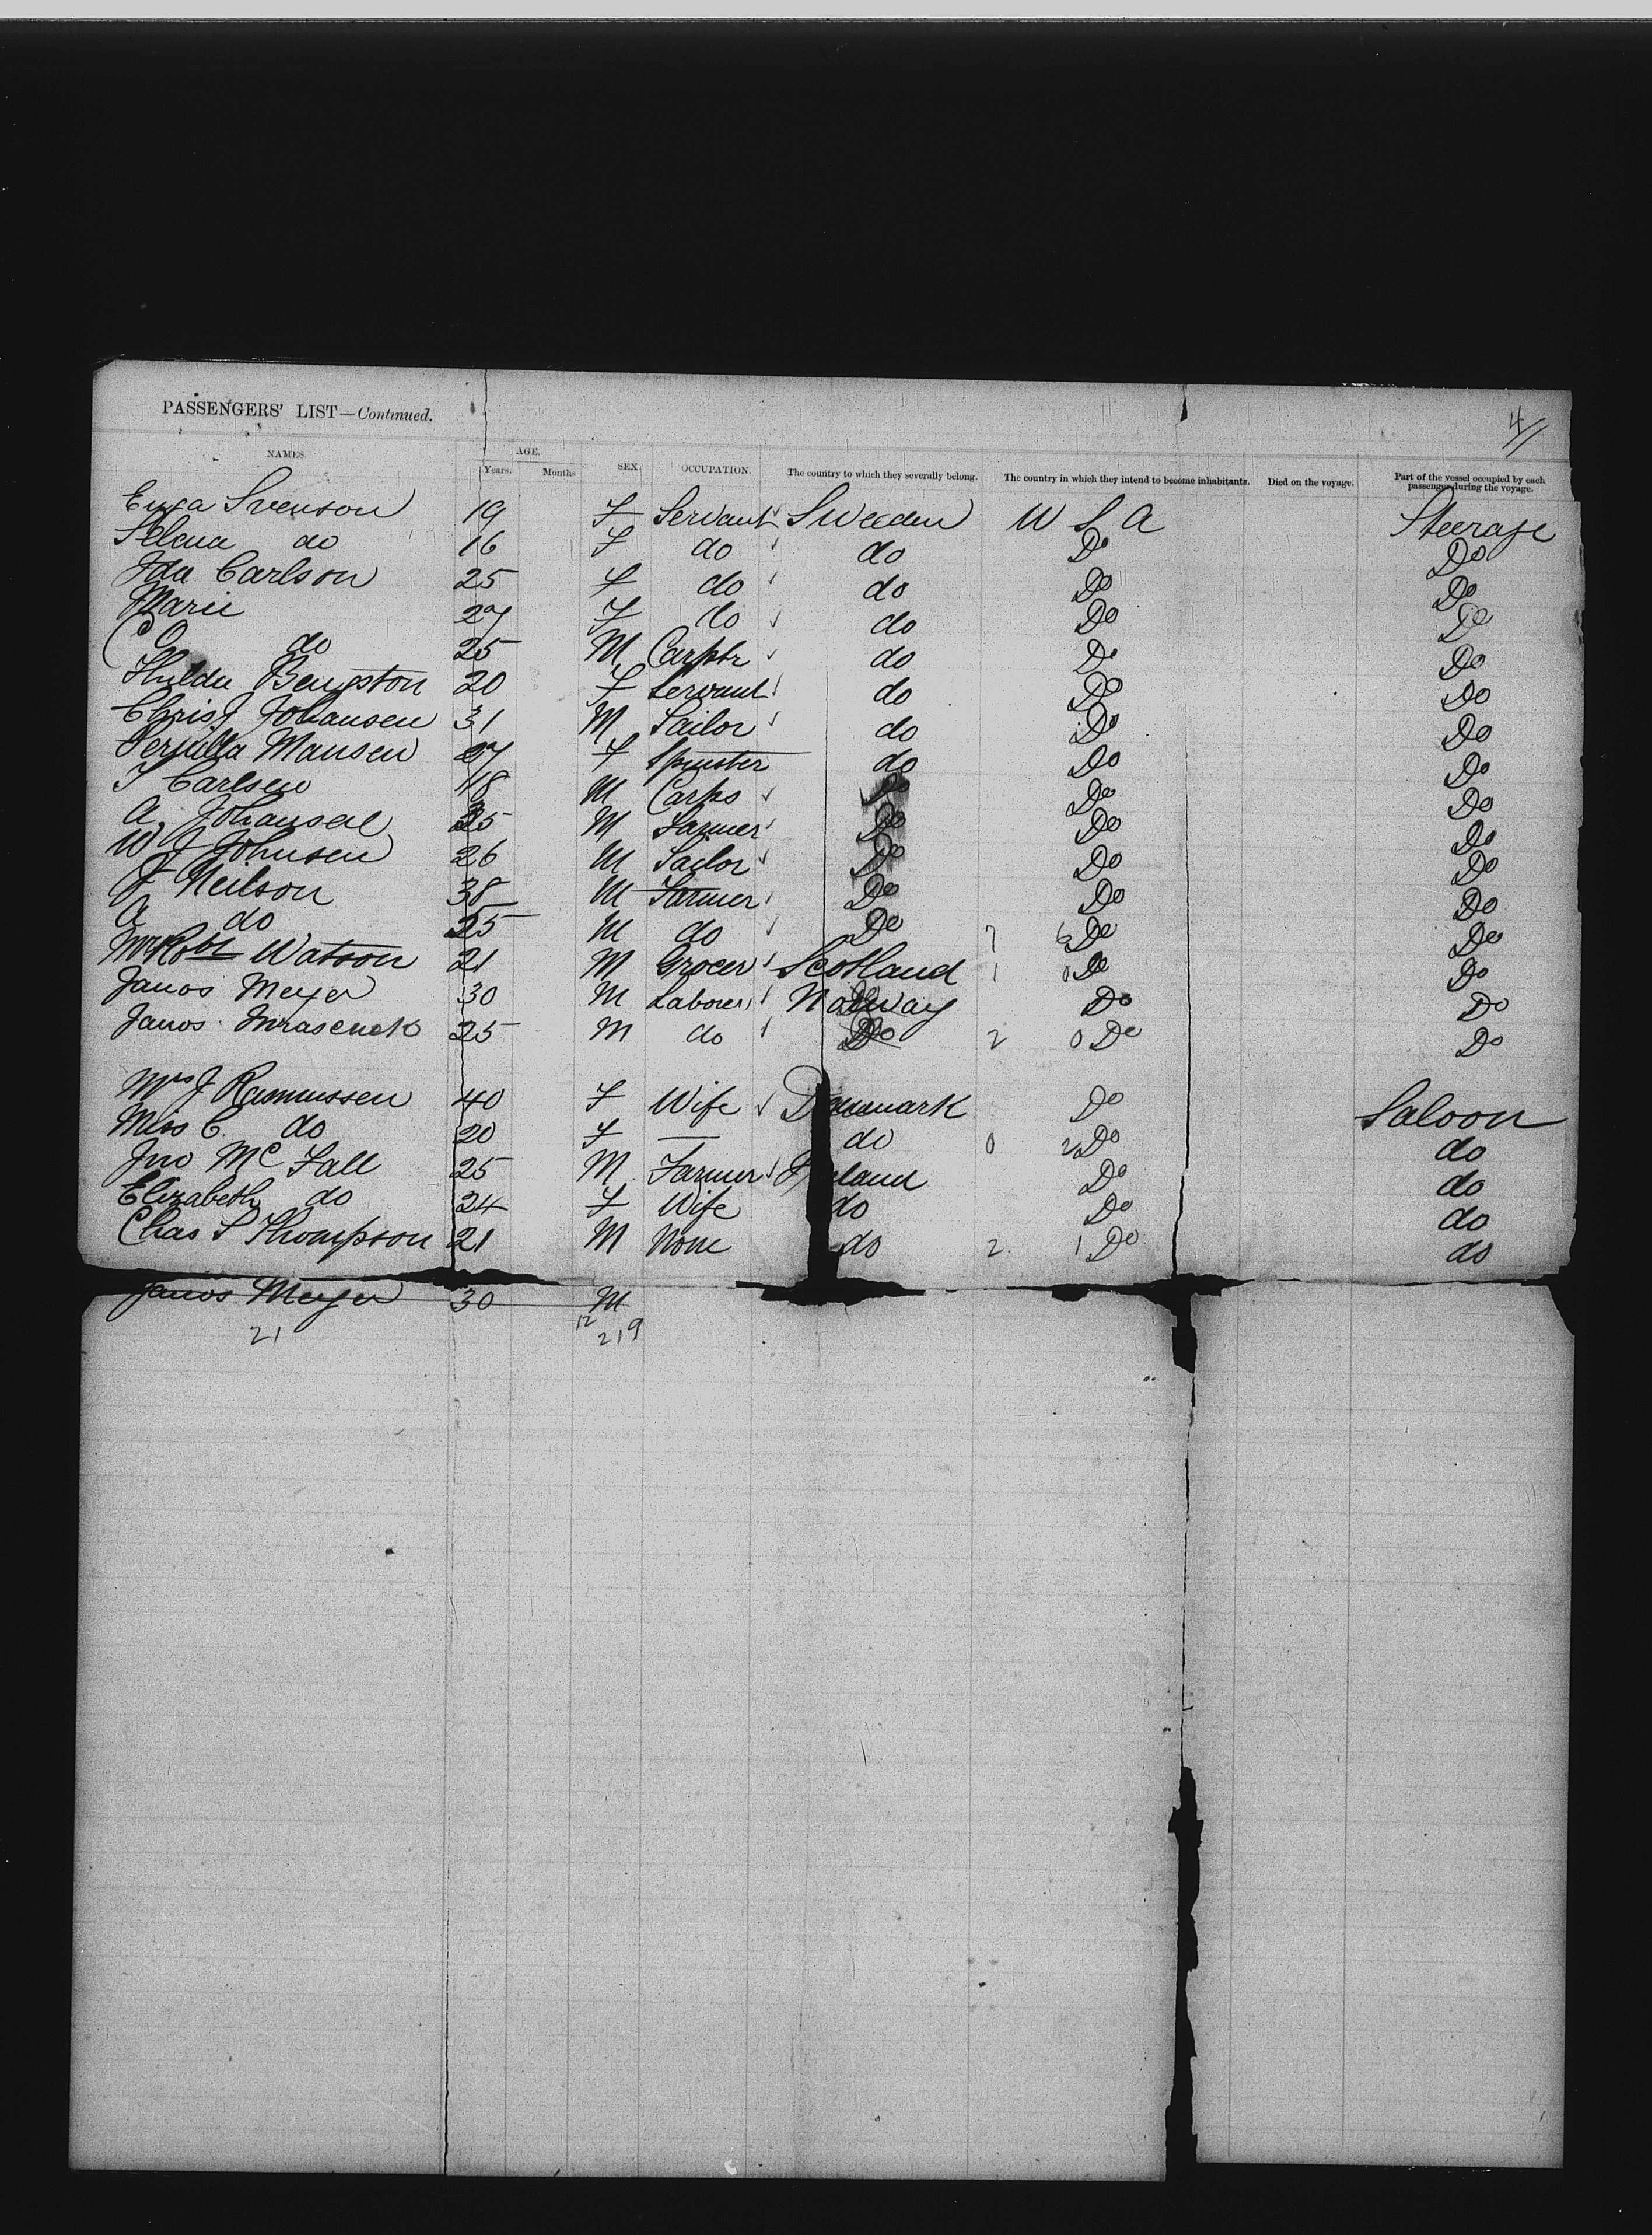 4/
PASSENGERS' LIST—Continued.
NAMES. AGE. Years. Months SEX. OCCUPATION. The country to which they severally belong. The country in which they intend to become inhabitants. Died on the voyage. Part of the vessel occupied by each passenger during the voyage.
Svenson 19 F Servant Sweeden U S A Steerage
Selma do 16 F do do Do Do
Ida Carlson 25 F do do Do Do
Marie 27 F do do Do Do
C O do 25 M Carptr do Do Do
Hulda Bengston 20 F Servant do Do Do
Chris J Johansen 31 M Sailor do Do Do
Pernilla Mansen 27 F Spinster do Do Do
Carlsen 18 M Carps Do Do Do
A. Johansen 25 M Farmer Do Do Do
W J Johnsen 26 M Sailor Do Do Do
J Neilson 38 M Farmer Do Do Do
A do 25 M do Do 7 6 Do Do
Mr Robt Watson 21 M Grocer Scotland 1 0 Do Do
Janos Meyer 30 M Labourer Norway Do Do
Janos 25 M do Do 2 0 Do Do
Mrs J Rasmussen 40 F Wife Denmark Do Saloon
Miss C. do 20 F — do 0 2 Do do
Jno McFall 25 M Farmer Ireland Do do
Elizabeth do 24 F Wife do Do do
Chas S Thompson 21 M None do 2 1 Do do
Janos Meyer 30 M
21 12 219